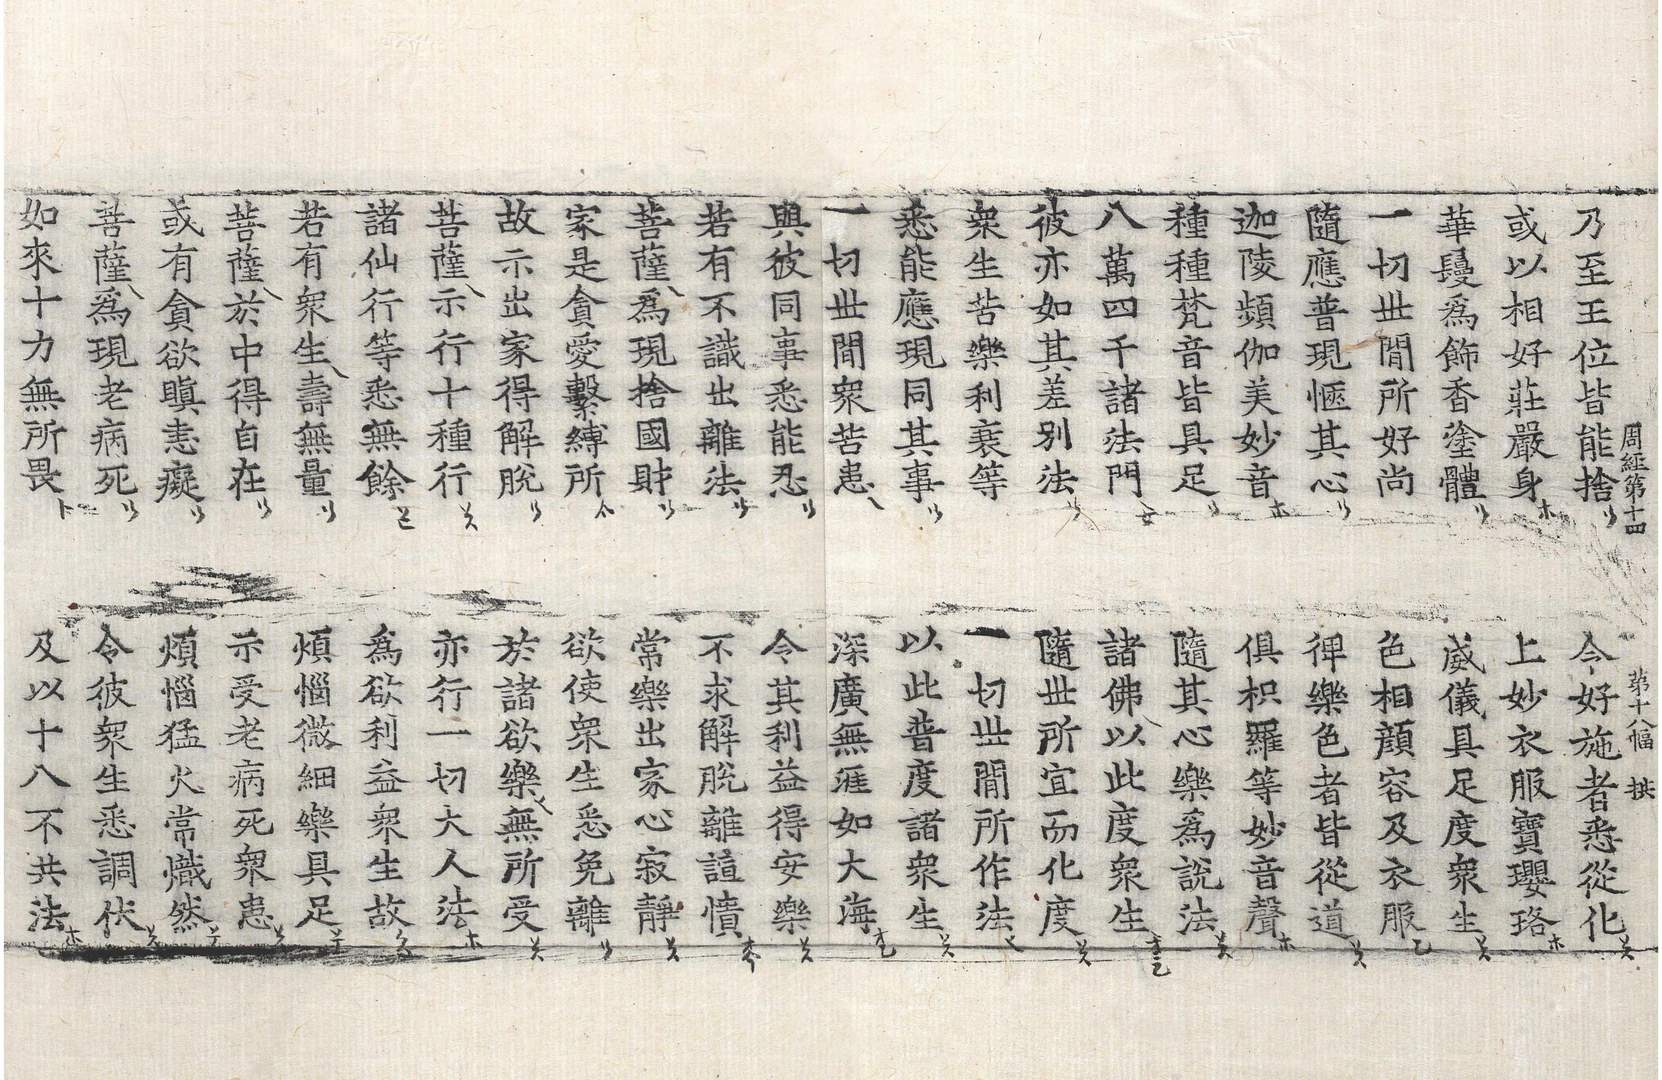 周經第十四
第十八幅
拱
乃至王位皆能捨
令好施者悉從化
或以相好莊嚴身
上妙衣服寶瓔珞
華鬘爲飾香塗體
威儀具足度衆生
一切世間所好尚
色相顔容及衣服
隨應普現愜其心
俾樂色者皆從道
迦陵頻伽美妙音
俱枳羅等妙音聲
種種梵音皆具足
隨其心樂爲說法
八萬四千諸法門
諸佛以此度衆生
彼亦如其差別法
隨世所宜而化度
衆生苦樂利衰等
一切世間所作法
悉能應現同其事
以此普度諸衆生
一切世間衆苦患
深廣無涯如大海
與彼同事悉能忍
令其利益得安樂
若有不識出離法
不求解脫離諠憒
菩薩爲現捨國財
常樂出家心寂靜
家是貪愛繫縛所
欲使衆生悉免離
故示出家得解脫
於諸欲樂無所受
菩薩示行十種行
亦行一切大人法
諸仙行等悉無餘
爲欲利益衆生故
若有衆生壽無量
煩惱微細樂具足
菩薩於中得自在
示受老病死衆患
或有貪欲瞋恚癡
煩惱猛火常熾然
菩薩爲現老病死
令彼衆生悉調伏
如來十力無所畏
及以十八不共法